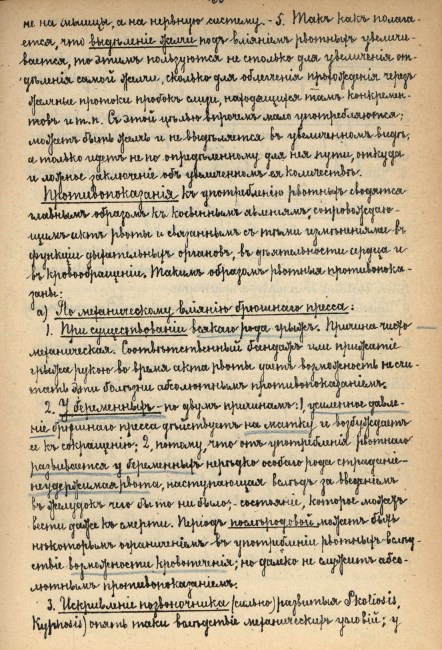 не на мышцы, а на нервную систему. - 5. Такъ какъ полага-
ется, что выдѣленіе желчи подъ вліяніемъ рвотныхъ увеличи-
вается, то этимъ пользуются не столько для увеличенія от-
дѣленія самой желчи, сколько для облегченія прохожденія черезъ
желчные протоки пробокъ слизи, находящихся тамъ конкремен-
товъ и т.п. Съ этой цѣлью впрочемъ мало употребляются;
можетъ быть желчь и не выдѣляется въ увеличенномъ видѣ,
а только идетъ не по опредѣленному для нея пути, откуда
и ложное заключеніе объ увеличенномъ ея количествѣ.
Противопоказанія къ употребленію рвотныхъ сводятся
главнымъ образомъ къ косвеннымъ явленіямъ, сопровождаю-
щимъ актъ рвоты и связаннымъ съ тѣми измѣненіями въ
функціи дыхательныхъ органовъ, въ дѣятельности сердца и
въ кровообращеніи. Такимъ образомъ рвотныя противопока-
заны:
а) По механическому вліянію брюшнаго пресса:
1. При существованіи всякаго рода грыжъ. Причина чисто
механическая. Соотвѣтственный бандажъ или прижатіе
грыжи рукою во время акта рвоты даетъ возможность не счи-
тать эти болѣзни абсолютнымъ противопоказаніемъ.
2. У беременныхъ - по двумъ причинамъ: 1, усиленное давле-
ніе брюшнаго пресса дѣйствуетъ на матку и возбуждаетъ
ее къ сокращенію; 2, потому, что отъ употребленія рвотнаго
развивается у беременныхъ нерѣдко особаго рода страданіе -
неудержимая рвота, наступающая вслѣдъ за введеніемъ
въ желудокъ чего бы то ни было; - состояніе, которое можетъ
вести даже къ смерти. Періодъ послѣродовой можетъ быть
нѣкоторымъ ограниченіемъ въ употребленіи рвотныхъ вслѣд-
ствіе возможности кровотеченія; но далеко не служитъ абсо-
лютнымъ противопоказаніемъ.
3. Искривленіе позвоночника (сильно) развитыя Skoliosis,
Kyphosis) опять таки вслѣдствіе механическихъ условій; у